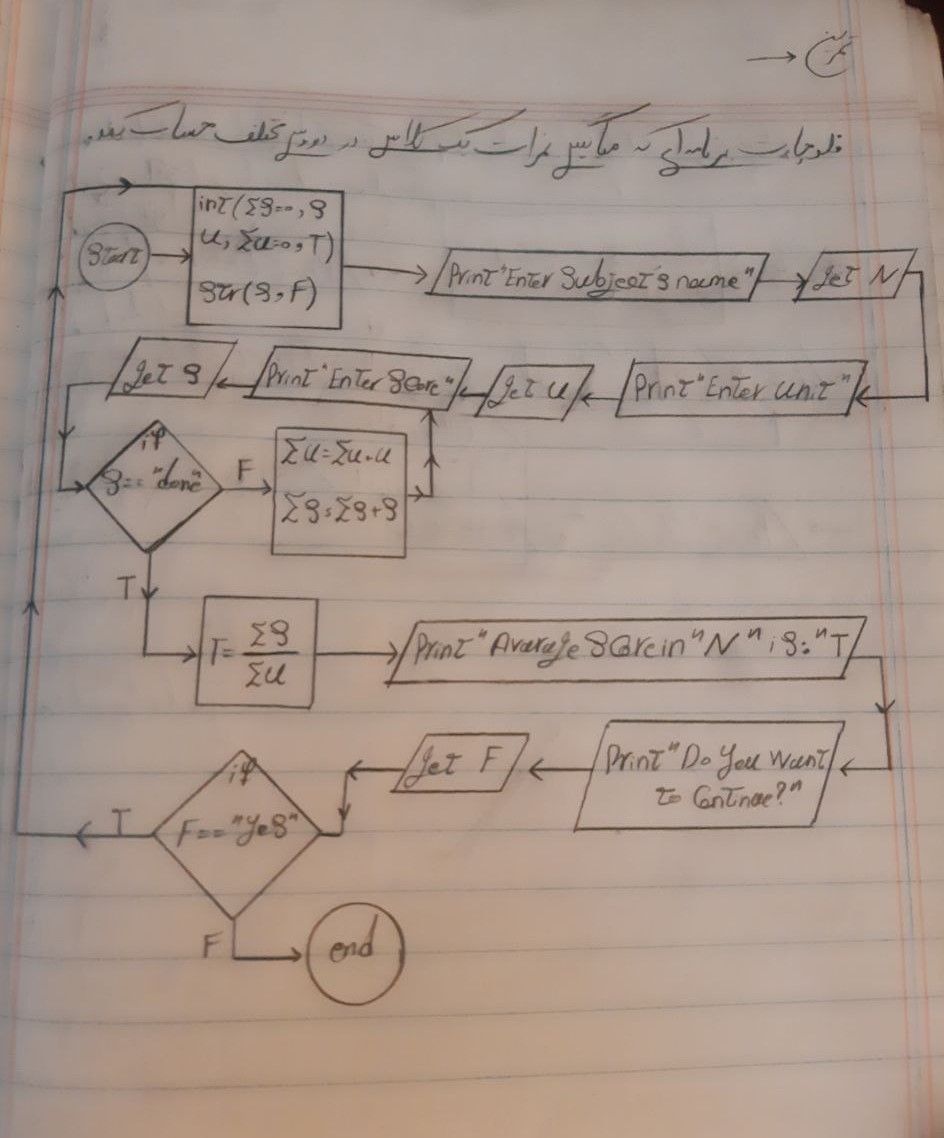 تمرین →
فلوچارت برنامه‌ای که میانگین نمرات یک کلاس در دروس مختلف حساب کند.
Start
int(ΣS=0, S
U, ΣU=0, T)
Str(S, F)
Print "Enter Subject's name"
get N
Print "Enter unit"
get U
Print "Enter Score"
get S
if
S== "done"
F
ΣU=ΣU+U
ΣS=ΣS+S
T
T= ΣS
ΣU
Print "Average Score in "N" is: "T
Print "Do You Want
to Continue?"
get F
if
F=="YeS"
T
F
end